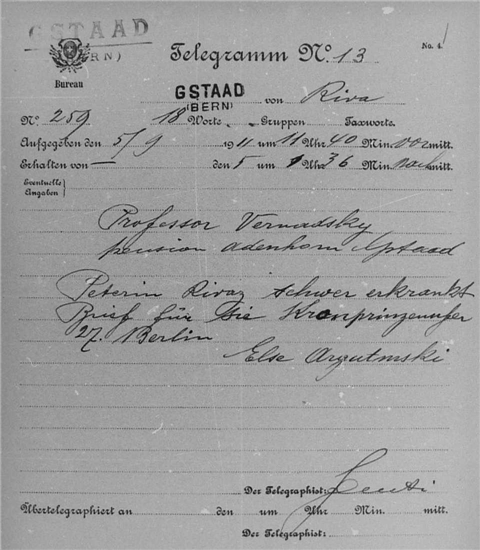 GSTAAD
(BERN)
Bureau
Telegramm No. 13
No. 4.
GSTAAD
(BERN)
von Riva
No. 259 18 Worte - Gruppen Taxworte.
Aufgegeben den 5/9 1911 um 11 Uhr 40 Min. vormitt.
Erhalten von — den 5 um 1 Uhr 36 Min. nachmitt.
Eventuelle
Angaben
Professor Vernadsky
pension adenhorn Gstaad
Peter in Riva schwer erkrankt
Brief für Sie Kronprinzenufer
27. Berlin
Else Argutinski
Der Telegraphist:
Übertelegraphiert an den um Uhr Min. mitt.
Der Telegraphist: